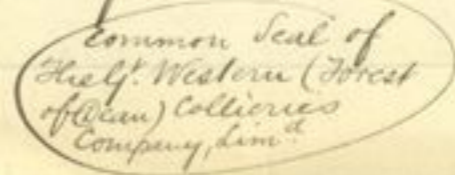 Common Seal of
The Gt. Western (Forest
of Dean) Collieries
Company, Lim.d